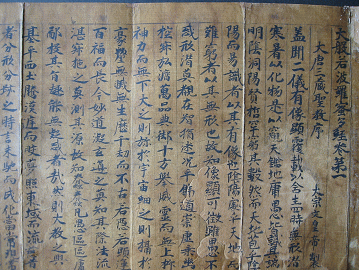 大般若波羅蜜多經卷第一
大唐三藏聖教序
太宗文皇帝製
蓋聞二儀有像顯覆載以含生四時無形潛
寒暑以化物是以窺天鑑地庸愚皆識其端
明陰洞陽賢哲罕窮其數然而天地苞乎陰
陽而易識者以其有像也陰陽處乎天地而
難窮者以其無形也故知像顯可徵雖愚不
惑形潛莫覩在智猶迷況乎佛道崇虛乘幽
控寂弘濟萬品典御十方舉威靈而無上抑
神力而無下大之則彌於宇宙細之則攝於
毫釐無滅無生歷千劫而不古若隱若顯運
百福而長今妙道凝玄遵之莫知其際法流
湛寂挹之莫測其源故知蠢蠢凡愚區區庸
鄙投其旨趣能無疑惑者哉然則大教之興
基乎西土騰漢庭而皎夢照東域而流慈昔
者分形分跡之時言未馳而成化當常現常